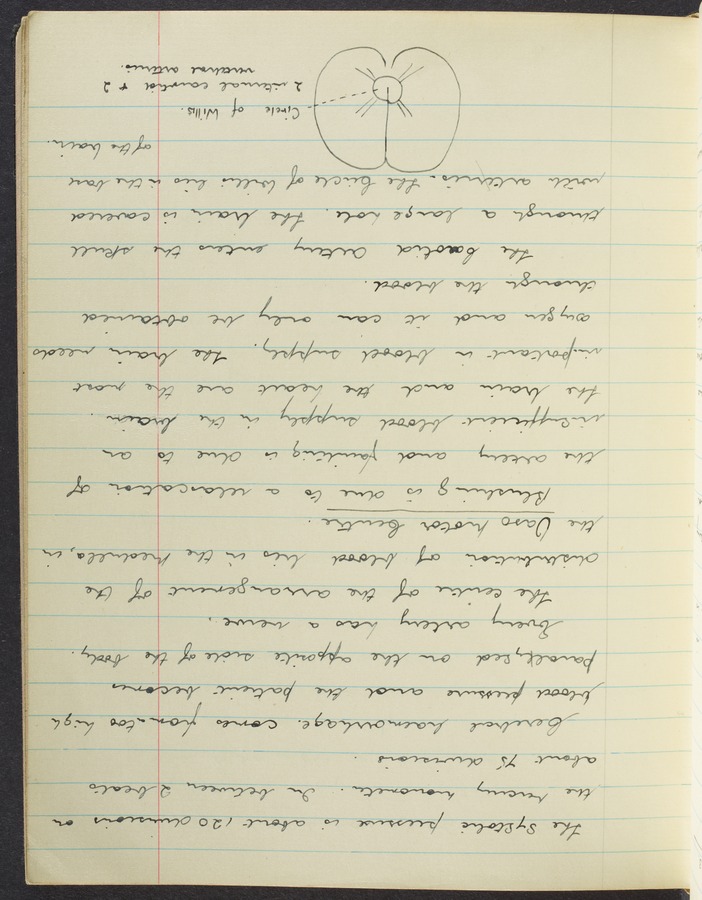 The Systolic pressure is about 120 divisions on
the mercury manometer. In between 2 beats
about 75 divisions.
Cerebral haemorrhage. comes from too high
blood pressure and the patient becomes
paralysed on the opposite side of the body.
Every artery has a nerve.
The centre of the arrangement of the
distribution of blood lies in the medulla, in
the Vaso Motor Centre.
Blushing is due to a relaxation of
the artery and fainting is due to an
insufficient blood supply in the brain.
The brain and the heart are the most
important in blood supply. The brain needs
oxygen and it can only be obtained
through the blood.
The Carotid artery enters the skull
through a large hole. The brain is covered
with arteries. The Circle of Willis lies in the base
of the brain.
Circle of Willis.
2 internal carotid & 2
vertebral arteries.